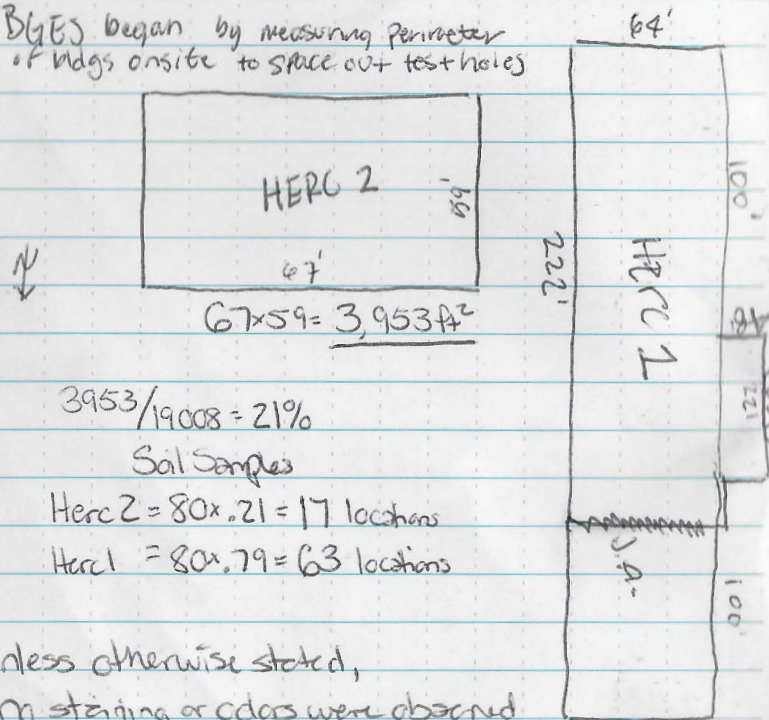 BGES began by measuring perimeter
of bldgs onsite to space out test holes
64'
HERC 2
59'
67'
67×59= 3,953ft²
222'
Herc 1
100'
18'
22'
3953/19008 = 21%
Soil Samples
Herc 2 = 80x.21 = 17 locations
Herc1 = 80x.79 = 63 locations
100'
nless otherwise stated,
no staining or odors were observed